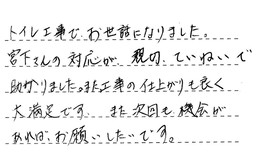 トイレ工事で、お世話になりました。
宮下さんの対応が、親切、ていねいで
助かりました。また工事の仕上がりも良く
大満足です。また次回も機会が
あれば、お願いしたいです。